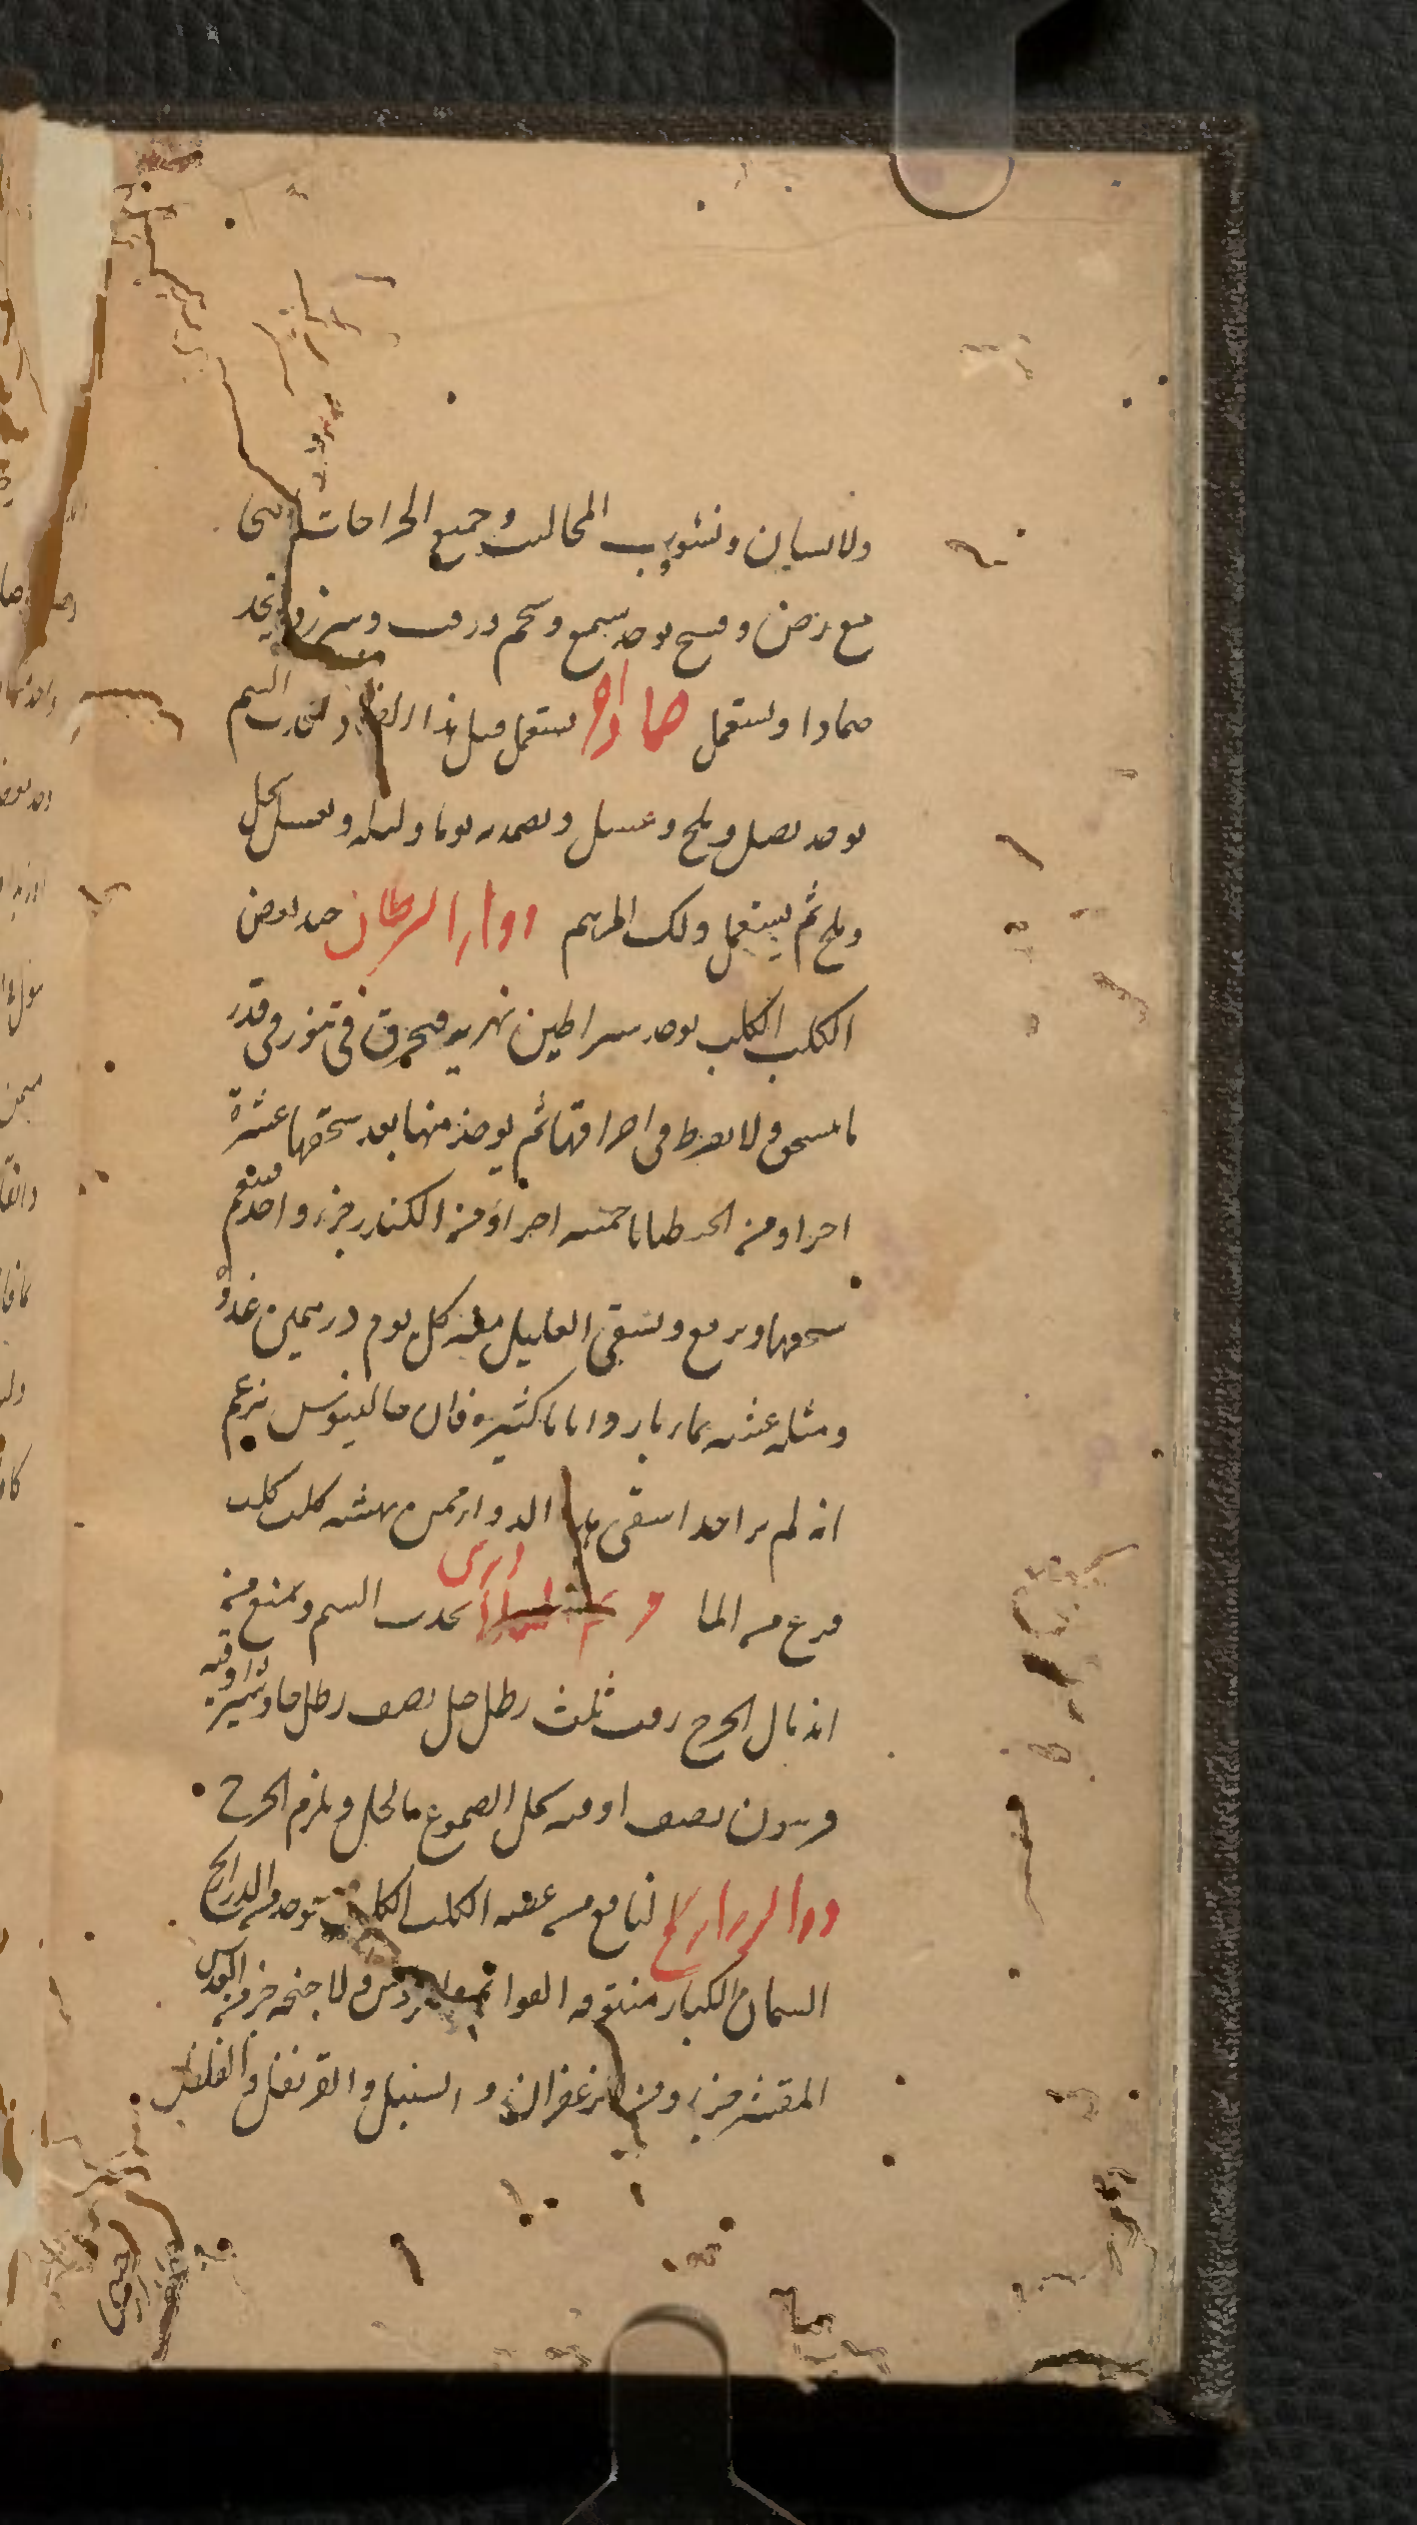 ولانسان ونشوب المخالب وجميع الجراحات التى
مع رض وفسح يوحد شمع وشحم وزفت وسرزد ويتخذ
ضمادا ويستعمل ضماد اخر يستعمل قبل هذا الضماد لجذب السم
يوحد بصل وملح وعسل ويضمد به يوما وليله ويغسل بخل
وملح ثم يستعمل ذلك المرهم دواء السرطان جيد لعض
الكلب الكلب يوحد سراطين نهرية فيحرق فى تنور فى قدر
ما ينسحق ولا يفرط فى احراقها ثم يوخذ منها بعد سحقها عشرة
اجزاء ومن الجنطيانا خمسه اجزاء ومن الكندر جزء واحد ينعم
سحقها ويرفع ويسقى العليل منه كل يوم درهمين غدوة
ومثله عشيه بماء بارد اياما كثيرة فان جالينوس يزعم
انه لم ير احدا سقى هذا الدواء ممن نهشه كلب كلب
فزع من الماء اخرى يجذب السم ويمنع من
اندمال الجرح زفت ثلث رطل خل نصف رطل جاوشير اوقيه
فربيون نصف اوقيه تحل الصموغ بالخل ويلزم الجرح
دواء الذراريح النافع من عضه الكلب الكلب توحد من الذراريح
السمان الكبار منتوفه القوائم والرؤس والاجنحه جزء ومن العدس
المقشر جزء ومن الزعفران والسنبل والقرنفل والفلفل